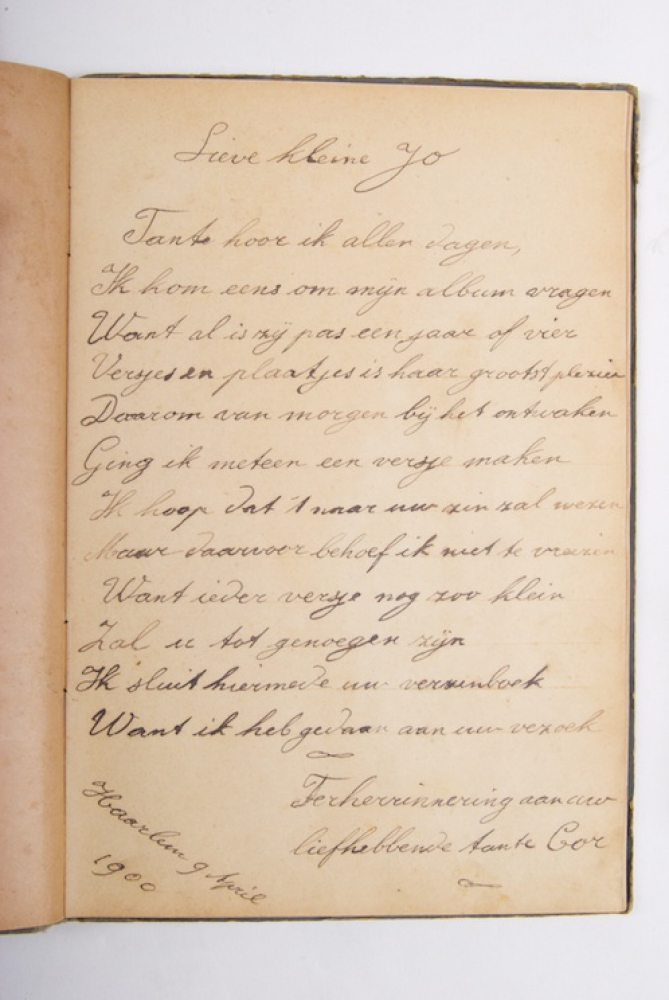 Lieve kleine Jo
Tante hoor ik allen dagen,
Ik kom eens om mijn album vragen
Want al is zij pas een jaar of vier
Versjes en plaatjes is haar grootst plezier
Daarom van morgen bij het ontwaken
Ging ik meteen een versje maken
Ik hoop dat 't naar uw zin zal wezen
Maar daarvoor behoef ik niet te vreezen
Want ieder versje nog zoo klein
Zal u tot genoegen zijn
Ik sluit hiermede uw verzenboek
Want ik heb gedaan aan uw vezoek
Ter herrinnering aan uw
liefhebbende tante Cor
Haarlem 9 April
1900